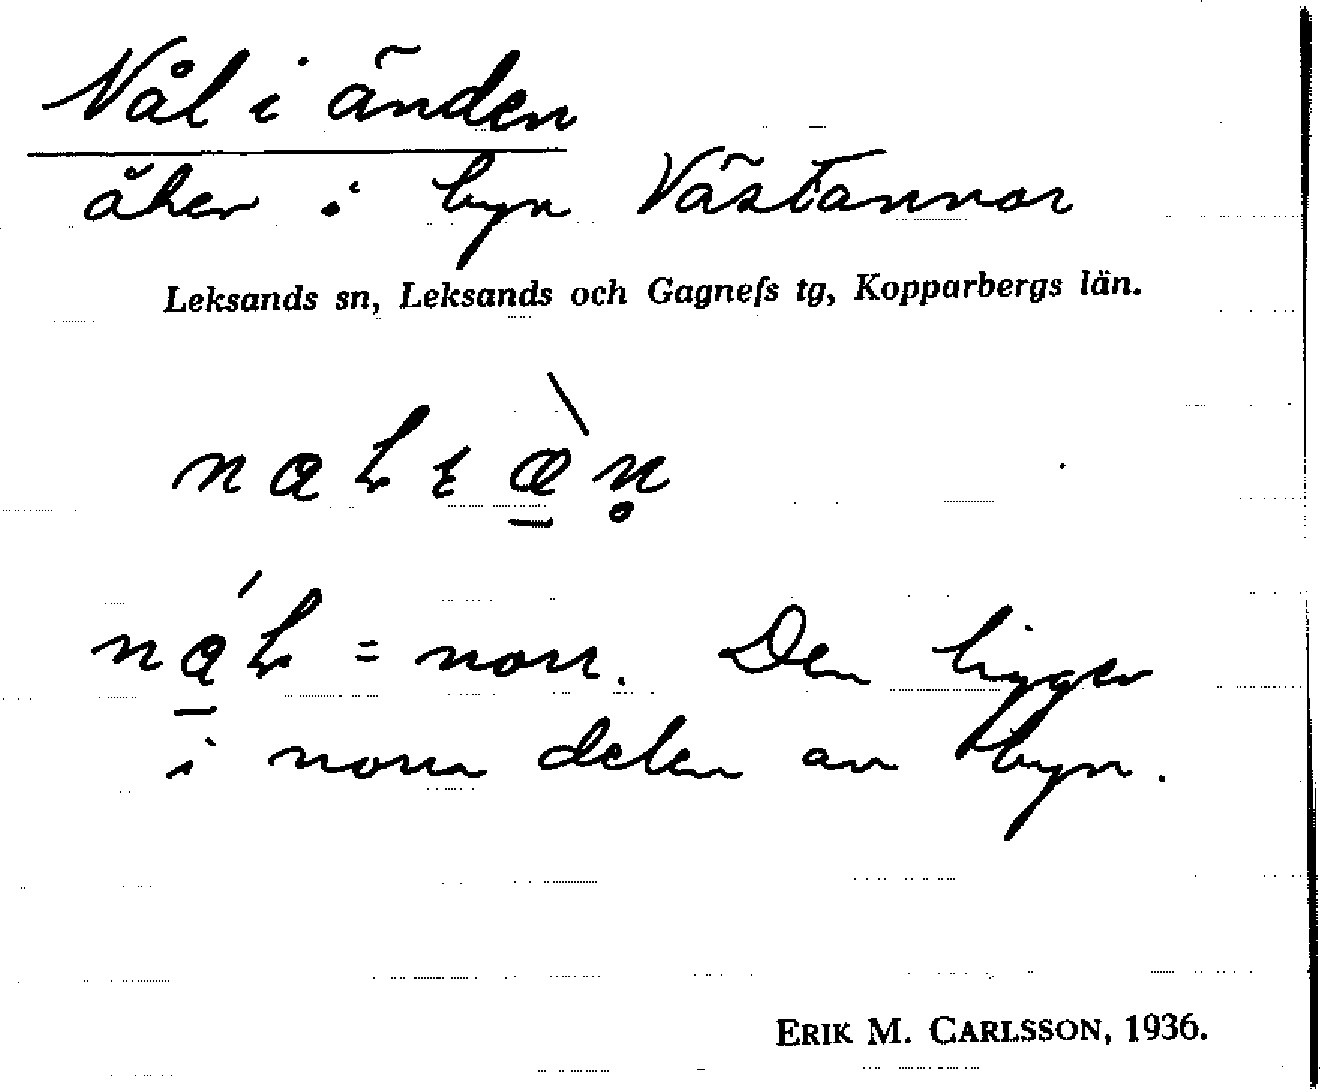 Nål i änden
åker i byn Västannor
Leksands sn, Leksands och Gagnefs tg, Kopparbergs län.
= norr. Den ligger
i norra delen av byn.
ERIK M. CARLSSON, 1936.